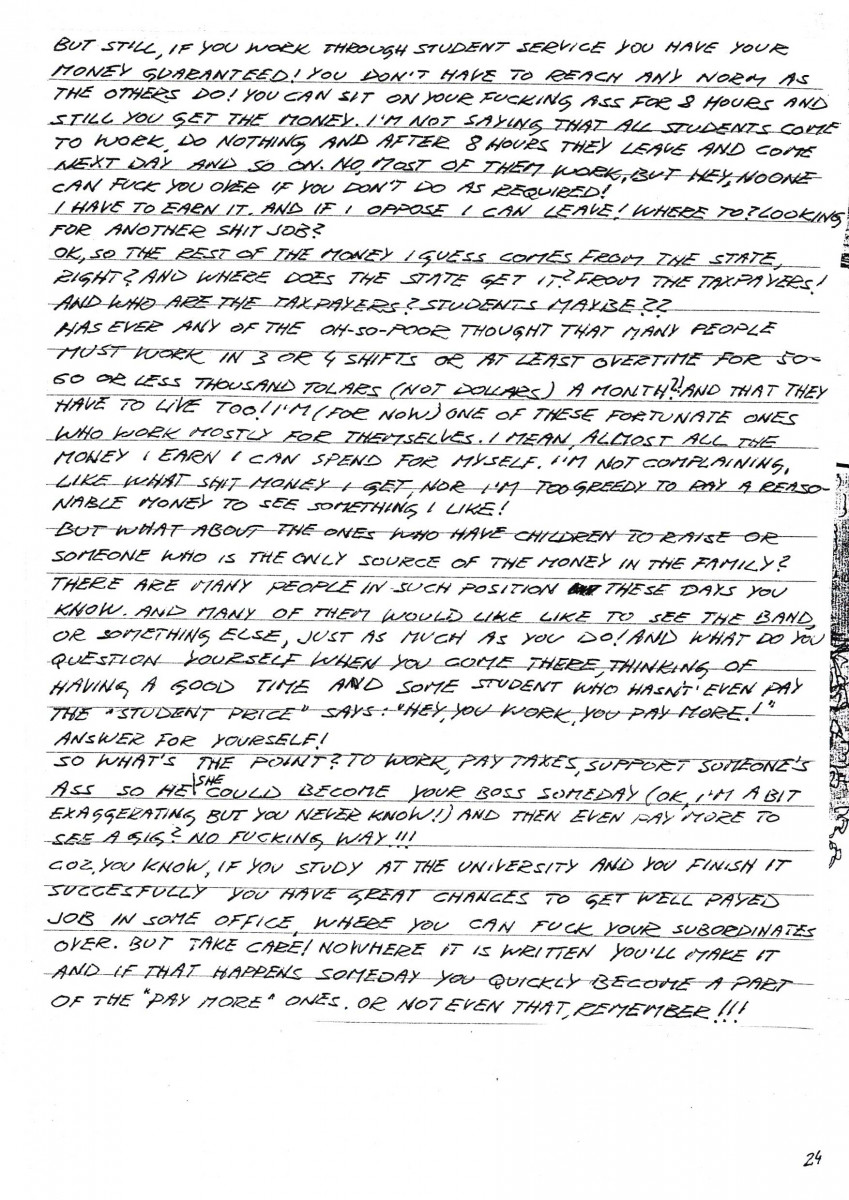 BUT STILL, IF YOU WORK THROUGH STUDENT SERVICE YOU HAVE YOUR
MONEY GUARANTEED! YOU DON'T HAVE TO REACH ANY NORM AS
THE OTHERS DO! YOU CAN SIT ON YOUR FUCKING ASS FOR 8 HOURS AND
STILL YOU GET THE MONEY. I'M NOT SAYING THAT ALL STUDENTS COME
TO WORK, DO NOTHING AND AFTER 8 HOURS THEY LEAVE AND COME
NEXT DAY AND SO ON. NO, MOST OF THEM WORK, BUT HEY, NOONE
CAN FUCK YOU OVER IF YOU DON'T DO AS REQUIRED!
I HAVE TO EARN IT. AND IF I OPPOSE I CAN LEAVE! WHERE TO? LOOKING
FOR ANOTHER SHIT JOB?
OK, SO THE REST OF THE MONEY I GUESS COMES FROM THE STATE,
RIGHT? AND WHERE DOES THE STATE GET IT? FROM THE TAXPAYERS!
AND WHO ARE THE TAXPAYERS? STUDENTS MAYBE??
HAS EVER ANY OF THE OH-SO-POOR THOUGHT THAT MANY PEOPLE
MUST WORK IN 3 OR 4 SHIFTS OR AT LEAST OVERTIME FOR 50-
60 OR LESS THOUSAND TOLARS (NOT DOLLARS) A MONTH?! AND THAT THEY
HAVE TO LIVE TOO! I'M (FOR NOW) ONE OF THESE FORTUNATE ONES
WHO WORK MOSTLY FOR THEMSELVES. I MEAN, ALMOST ALL THE
MONEY I EARN I CAN SPEND FOR MYSELF. I'M NOT COMPLAINING,
LIKE WHAT SHIT MONEY I GET, NOR I'M TOO GREEDY TO PAY A REASO-
NABLE MONEY TO SEE SOMETHING I LIKE!
BUT WHAT ABOUT THE ONES WHO HAVE CHILDREN TO RAISE OR
SOMEONE WHO IS THE ONLY SOURCE OF THE MONEY IN THE FAMILY?
THERE ARE MANY PEOPLE IN SUCH POSITION THESE DAYS YOU
KNOW. AND MANY OF THEM WOULD LIKE LIKE TO SEE THE BAND,
OR SOMETHING ELSE, JUST AS MUCH AS YOU DO! AND WHAT DO YOU
QUESTION YOURSELF WHEN YOU COME THERE, THINKING OF
HAVING A GOOD TIME AND SOME STUDENT WHO HASN'T EVEN PAY
THE "STUDENT PRICE" SAYS: "HEY, YOU WORK, YOU PAY MORE!"
ANSWER FOR YOURSELF!
SO WHAT'S THE POINT? TO WORK, PAY TAXES, SUPPORT SOMEONE'S
ASS SO HE\SHE COULD BECOME YOUR BOSS SOMEDAY (OK, I'M A BIT
EXAGGERATING, BUT YOU NEVER KNOW!) AND THEN EVEN PAY MORE TO
SEE A GIG? NO FUCKING WAY!!!
COZ, YOU KNOW, IF YOU STUDY AT THE UNIVERSITY AND YOU FINISH IT
SUCCESFULLY YOU HAVE GREAT CHANCES TO GET WELL PAYED
JOB IN SOME OFFICE, WHERE YOU CAN FUCK YOUR SUBORDINATES
OVER. BUT TAKE CARE! NOWHERE IT IS WRITTEN YOU'LL MAKE IT
AND IF THAT HAPPENS SOMEDAY YOU QUICKLY BECOME A PART
OF THE "PAY MORE" ONES. OR NOT EVEN THAT, REMEMBER!!!
24